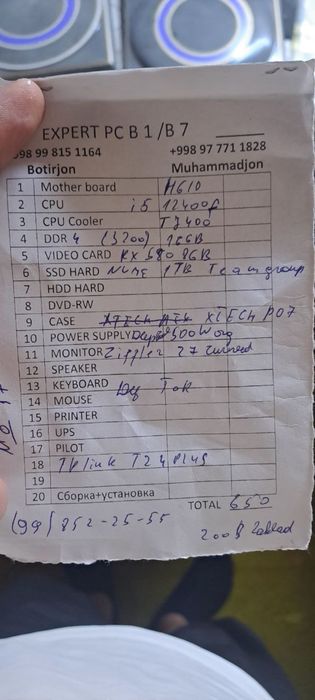 EXPERT PC B 1 /B 7
+998 99 815 1164 +998 97 771 1828
Botirjon Muhammadjon
1 Mother board H610
2 CPU i5 12400f
3 CPU Cooler TJ400
4 DDR 4 (3200) 16GB
5 VIDEO CARD RX 580 8GB
6 SSD HARD NVME 1TB Teamgroup
7 HDD HARD
8 DVD-RW
9 CASE XTECH P07
10 POWER SUPPLY 500W
11 MONITOR Ziffler 27 curved
12 SPEAKER
13 KEYBOARD
14 MOUSE
15 PRINTER
16 UPS
17 PILOT
18 TP link T2 4 Plus
19
20 Сборка+установка
TOTAL 650
(99) 852-25-55
200$ Zaklad